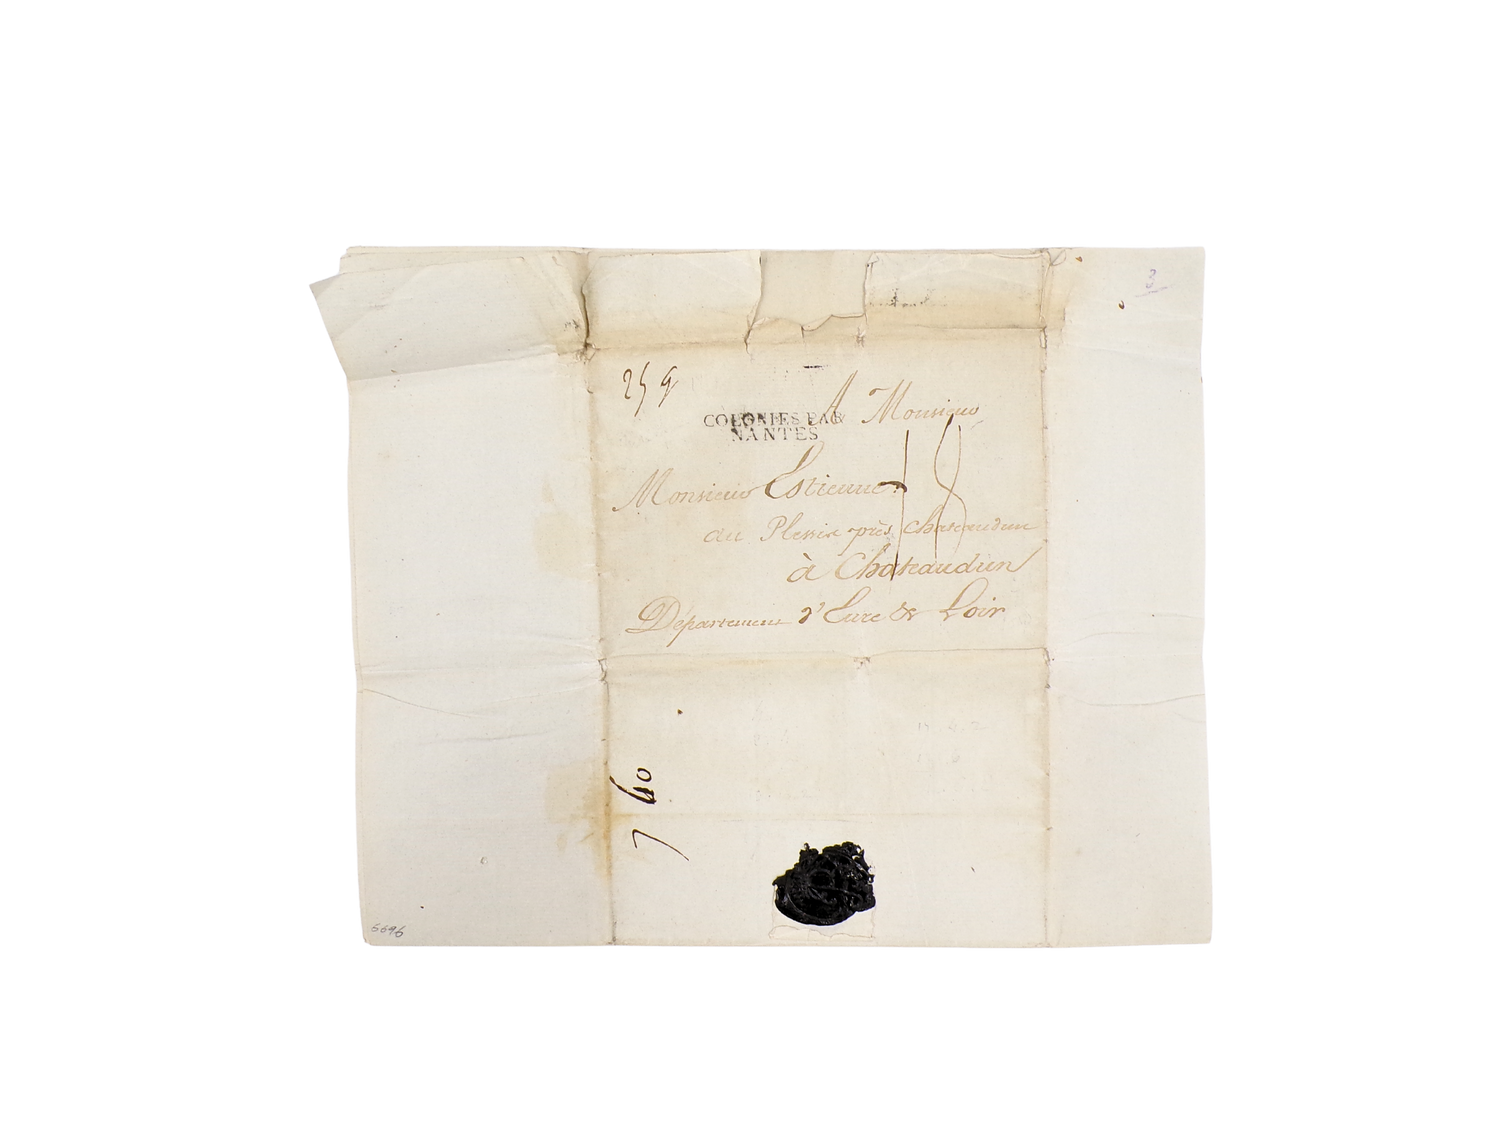 3
25 g
A Monsieur
COLONIES PAR
NANTES
Monsieur Estienne
au Plessix près Chateaudun
à Chateaudun
Département d'Eure & Loir
7 40
5696